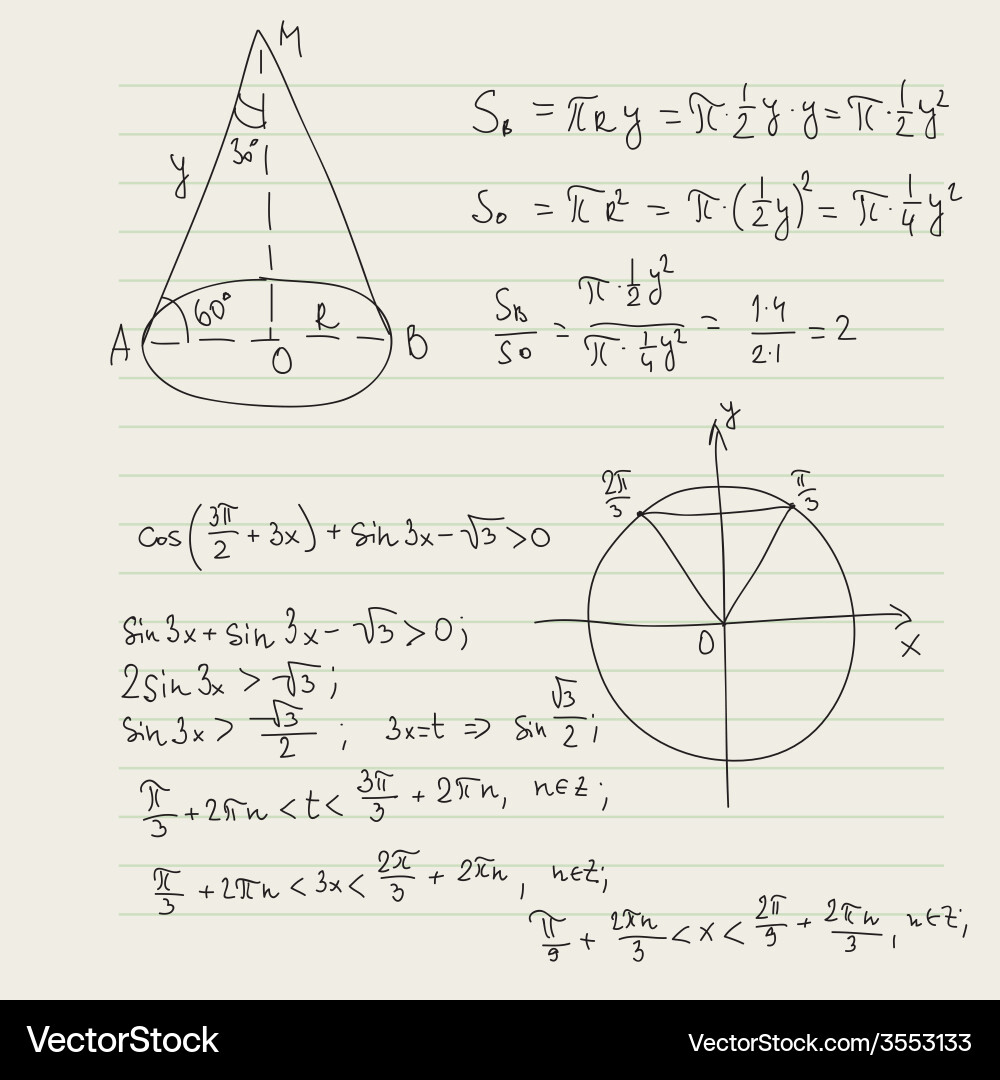 M
y
30°
60°
R
A
O
B
S_B = πRy = π·1/2 y·y = π·1/2 y²
S_O = πR² = π·(1/2 y)² = π·1/4 y²
S_B/S_O = (π·1/2 y²)/(π·1/4 y²) = (1·4)/(2·1) = 2
y
2π/3
π/3
O
x
cos(3π/2 + 3x) + sin 3x − √3 > 0
sin 3x + sin 3x − √3 > 0;
2 sin 3x > √3;
sin 3x > √3/2 ; 3x=t ⇒ sin √3/2;
π/3 + 2πn < t < 3π/3 + 2πn, n∈Z;
π/3 + 2πn < 3x < 2π/3 + 2πn, n∈Z;
π/9 + 2πn/3 < x < 2π/9 + 2πn/3, n∈Z;
VectorStock
VectorStock.com/3553133